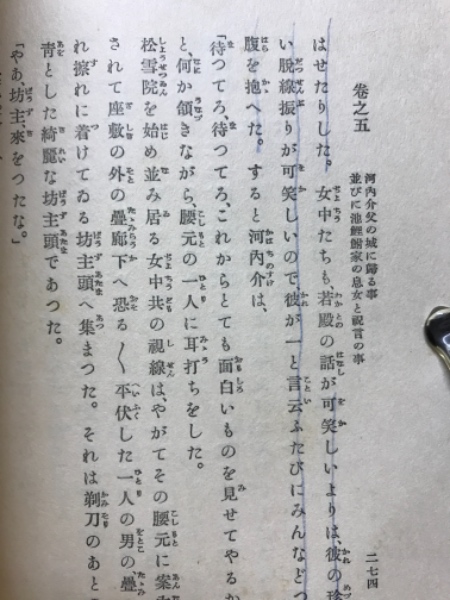 卷之五　河内介父の城に歸る事
並びに池鯉鮒家の息女と祝言の事
二七四
はせたりした。女中たちも、若殿の話が可笑しいよりは、彼の珍
い脱線振りが可笑しいので、彼が一と言云ふたびにみんなどつ
腹を抱へた。すると河内介は、
「待つてろ、待つてろ、これからとても面白いものを見せてやるか
と、何か頷きながら、腰元の一人に耳打ちをした。
松雪院を始め並み居る女中共の視線は、やがてその腰元に案
されて座敷の外の疊廊下へ恐る〳〵平伏した一人の男の、疊
れ擦れに着けてゐる坊主頭へ集まつた。それは剃刀のあと
青とした綺麗な坊主頭であつた。
「やあ、坊主、來をつたな。」